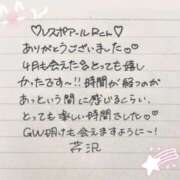 ♡レスポアールRさん♡
ありがとうございました♡♡
4月も会えた名とっても嬉し
かったです〜!! 時間が経つのが
あっという間に感じるくらい、
とっても楽しい時間でした♡
GW明けも会えますように〜!
芹沢